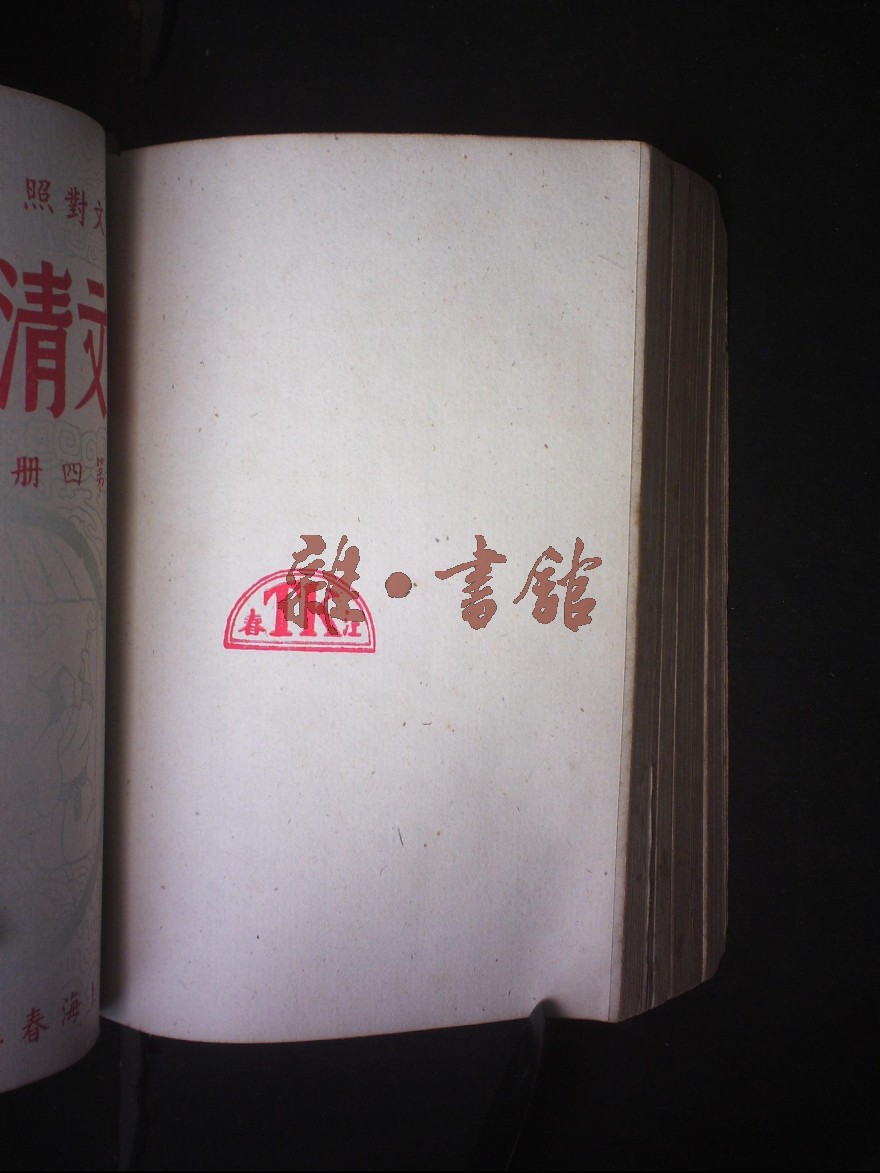 文對照
文清
第四册
上海春
雜·書館
春 T 江